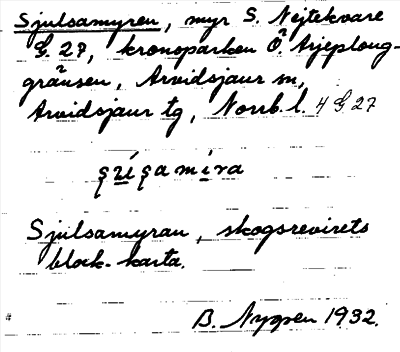 Sjulsamyren, myr S. Nejtekvare
G. 27, kronoparken Ö. Arjeploug-
gränsen, Arvidsjaur sn,
Arvidsjaur tg, Norrb. l. 4 G 27
Sjulsamyran, skogsrevirets
block-karta.
B. Nygren 1932.